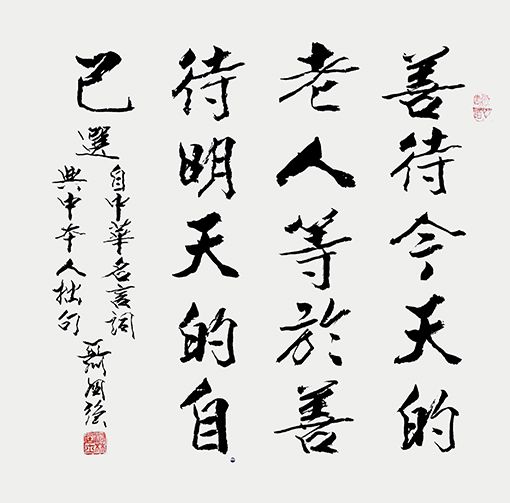 善待今天的
老人等於善
待明天的自
己
選自中華名言詞
典中本人拙句
聶國強